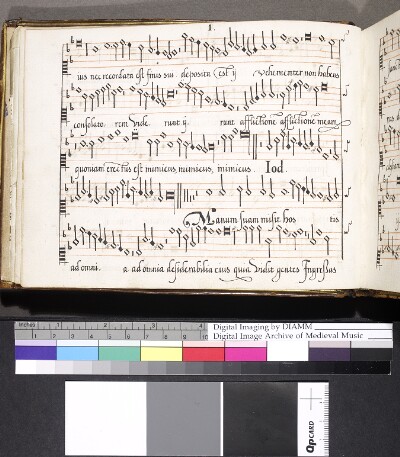 1.
ius nec recordata est finis sui. deposita est ij vehementer non habens
consolato. rem Vide. runt ij. runt afflictione afflictione meam
quoniam erectus est inimicus, inimicus, inimicus. Iod.
Manum suam misit hos tis
ad omni. a ad omnia desiderabilia eius quia Vidit gentes Ingressas
inches 1 2 3 4
Digital Imaging by DIAMM
Digital Image Archive of Medieval Music
QPCARD